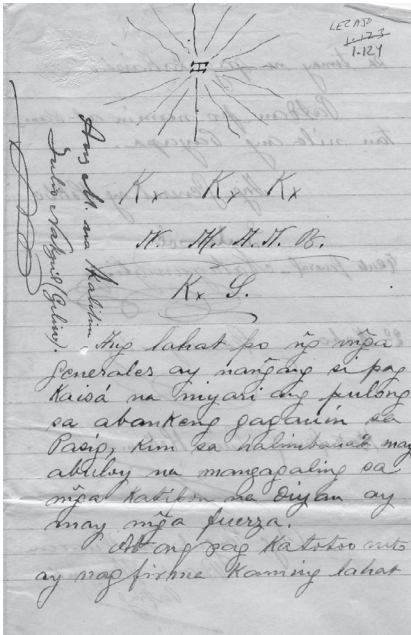 LEGAJO
1-123
1-124
Kx Kx Kx
Kx S.
Ang M. na Kalihim,
Julio Nakpil (Giliw).
Ang lahat po ng̃ mg̃a
Generales ay nang̃ag si pag
Kaisá na niyari ang pulong
sa abankeng gagauin sa
Pasig, kun sa may
abuloy na mangagaling sa
mg̃a Katibon na Diyan ay
may mg̃a fuerza.
At ang pag Katotoo nito
ay nag firma Kaming lahat